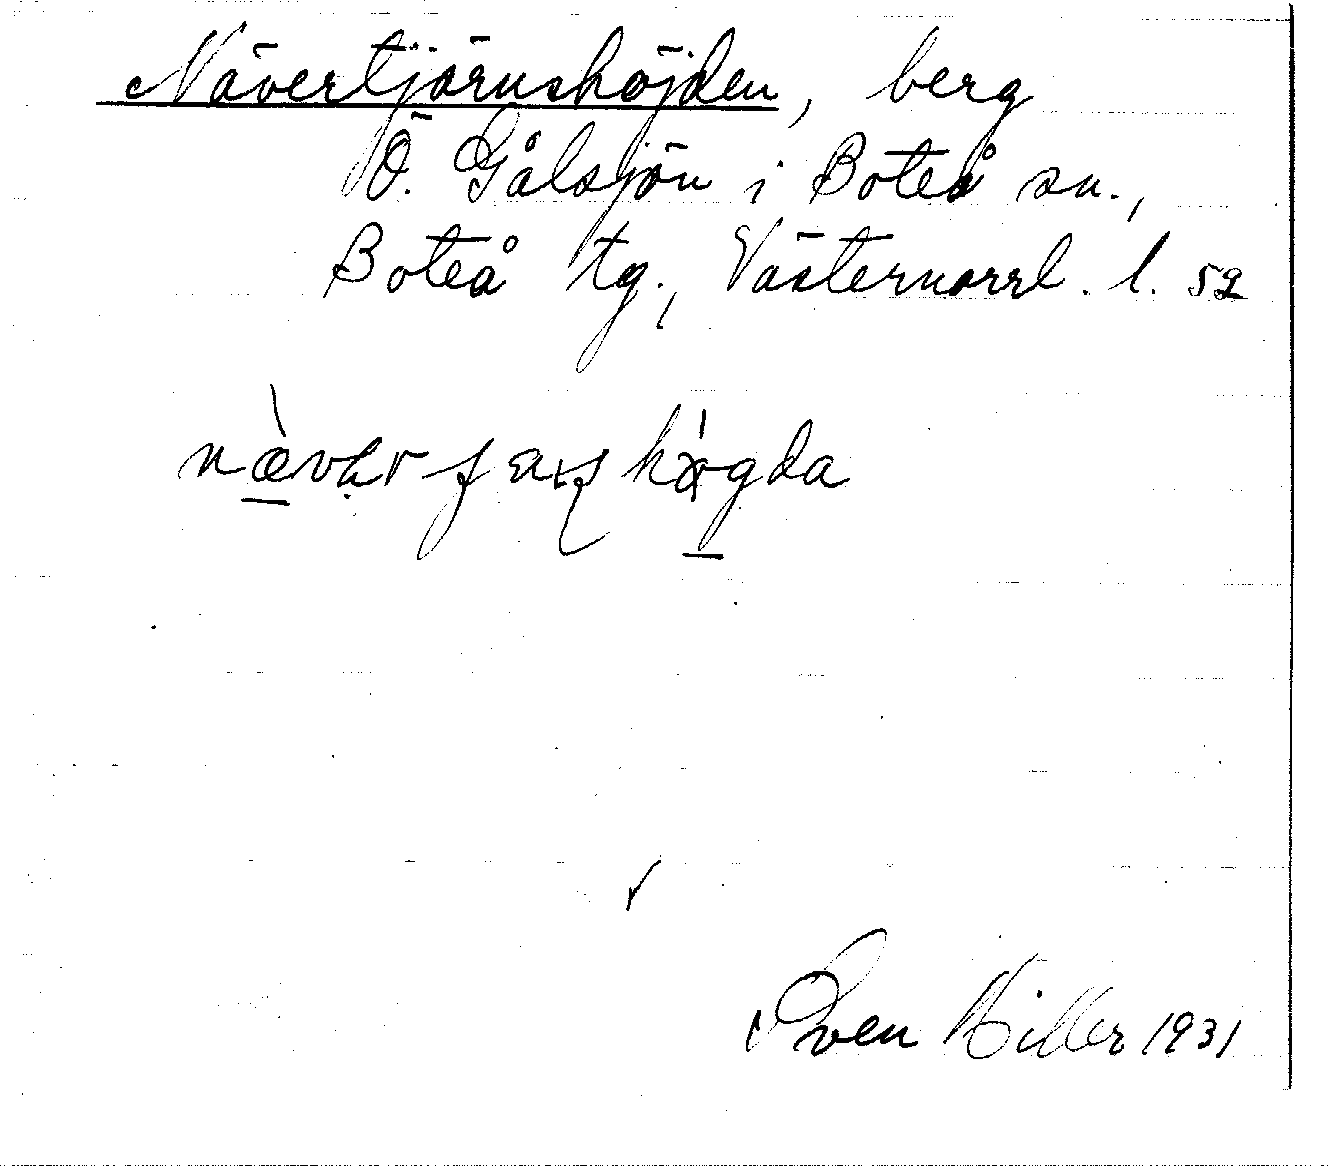 Nävertjärnshöjden, berg
Ö. Gålsjön i Boteå sn.,
Boteå tg., Västernorrl. l. 52
Sven Hiller 1931